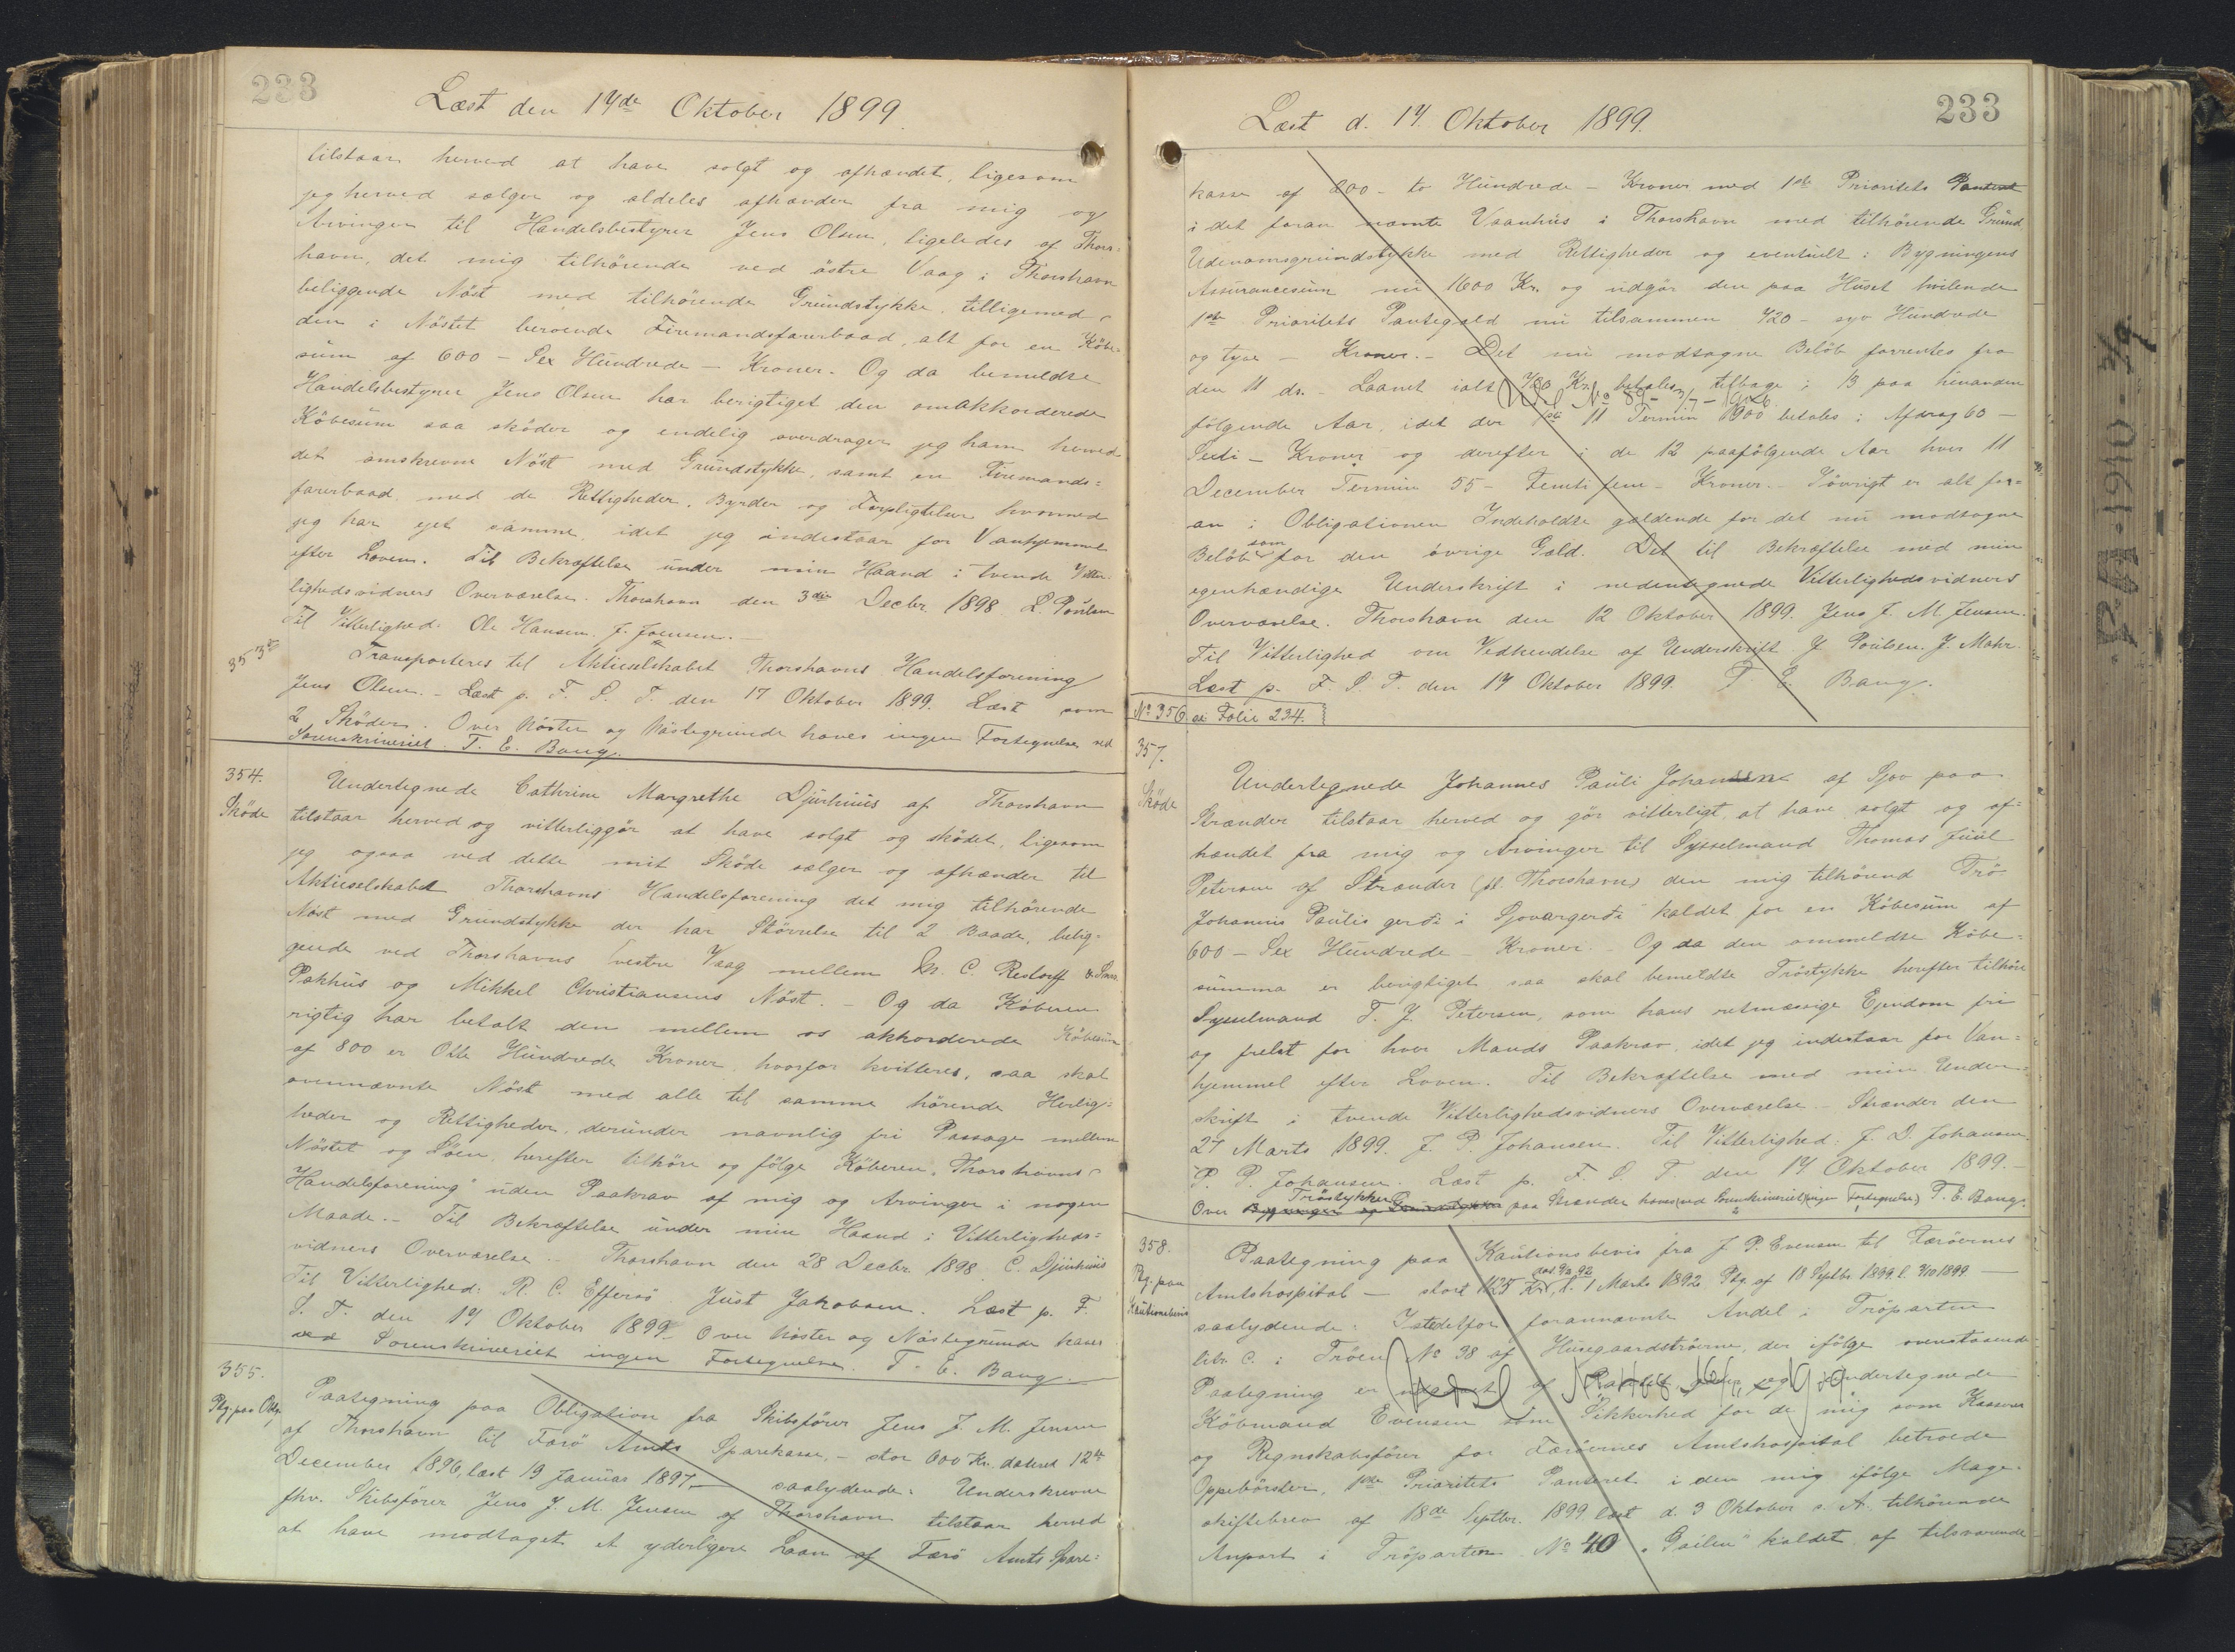 233
Læst den 17de Oktober 1899.
tilstaar herved at have solgt og afhændet, ligesom
jeg herved sælger og aldeles afhænder fra mig og
Arvinger til Handelsbestyrer Jens Olsen, ligeledes af Thors=
havn, det mig tilhörende ved östre Vaag i Thorshavn
beliggende Nöst med tilhörende Grundstykke, tilligemed
den i Nöstet beroende Firemandsfarerbaad, alt for en Köbe-
sum af 600 - Sex Hundrede - Kroner. Og da bemeldte
Handelsbestyrer Jens Olsen har berigtiget den omakkorderede
Köbesum saa sköder og endelig overdrager jeg ham herved
det omskrevne Nöst med Grundstykke, samt en Firemands=
farerbaad, med de Rettigheder, Byrder og Forpligtelser hvormed
jeg har ejet samme, idet jeg indestaar for Vanhjemmel
efter Loven. Til Bekræftelse under min Haand i tvende Vitter-
lighedsvidners Overværelse. Thorshavn den 3die Decbr. 1898. L. Poulsen
Til Vitterlighed: Ole Hansen. J. Joensen. -
353
Transporteres til Aktieselskabet Thorshavns Handelsforening
Jens Olsen. - Læst p. F. S. T. den 17 Oktober 1899. Læst som
2 Sköder. Over Nöster og Nöstegrunde haves ingen Fortegnelse ved
Sorenskriveriet. T. E. Bang.
354.
Sköde
Undertegnede Cathrine Margrethe Djurhuus af Thorshavn
tilstaar herved og vitterliggör at have solgt og skødet, ligesom
jeg ogsaa ved dette mit Sköde sælger og afhænder til
Aktieselskabet Thorshavns Handelsforening det mig tilhörende
Nöst med Grundstykke der har Störrelse til 2 Baade, belig-
gende ved Thorshavns vestre Vaag mellem M. C. Restorff & Sons
Pakhus og Mikkel Christiansens Nöst. - Og da Köberen
rigtig har betalt den mellem os akkorderede Köbesum
af 800 er Otte Hundrede Kroner, hvorfor kvitteres, saa skal
ovennævnte Nöst med alle til samme hörende Herlig=
heder og Rettigheder, derunder navnlig fri Passage mellem
Nöstet og Söen, herefter tilhöre og fölge Köberen, Thorshavns
Handelsforening" uden Paakrav af mig og Arvinger i nogen
Maade. - Til Bekræftelse under min Haand i Vitterligheds=
vidners Overværelse. Thorshavn den 28 Decbr 1898. C. Djurhuus
Til Vitterlighed: R. C. Effersö. Just Jakobsen. Læst p. F.
S. T. den 17 Oktober 1899. Over Nöster og Nöstegrunde haves
ved Sorenskriveriet ingen Fortegnelse. T. E. Bang.
355.
Ptg. paa Oblg.
Paategning paa Obligation fra Skibsförer Jens J. M. Jensen
af Thorshavn til Færö Amts Sparekasse, - stor 600 Kr. dateret 12te
December 1896, læst 19 Januar 1897 - saalydende: Underskrevne
fhv. Skibsförer Jens J. M. Jensen af Thorshavn tilstaar herved
at have modtaget et yderligere Laan af Færö Amts Spare=
Læst d. 17. Oktober 1899.
233
kasse af 200 - to Hundrede - Kroner med 1ste Prioritets Panteret
i det foran nævnte Vaanhus i Thorshavn med tilhörende Grund
Udenomsgrundstykke med Rettigheder og eventuelt i Bygningens
Assurancesum nu 1600 Kr. og udgör den paa Huset hvilende
1ste Prioritets Pantegæld nu tilsammen 720 - syv Hundrede
og tyve - Kroner. - Det nu modtagne Belöb forrentes fra
den 11 ds. - Laanet ialt 720 Kr. betales tilbage i 13 paa hinanden
Udsl. No 89 - 3/7 - 1926
fölgende Aar, idet der 1ste 11 Termin 1900 betales i Afdrag 60 -
Sexti - Kroner og derefter i de 12 paafölgende Aar hver 11
December Termin 55 - Femti fem - Kroner. - Iövrigt er alt for=
an i Obligationen Indeholdte gældende for det nu modtagne
Belöb som for den övrige Gæld. Det til Bekræftelse med min
egenhændige Underskrift i nedentegnede Vitterlighedsvidners
Overværelse. Thorshavn den 12 Oktober 1899. Jens J. M. Jensen.
Til Vitterlighed om Vedkendelse af Underskrift. J Poulsen. J. Mohr.
Læst p. F. S. T. den 17 Oktober 1899. T. E. Bang.
No 356 se Folie 234.
357.
Sköde
Undertegnede Johannes Pauli Johansen af Sjov paa
Strænder tilstaar herved og gör vitterligt, at have solgt og af=
hændet fra mig og Arvinger til Sysselmand Thomas Juul
Petersen af Strænder (pt. Thorshavn) den mig tilhörend Trö
Johannis Paulis gerði i Sjovargerði kaldet for en Köbesum af
600 - Sex Hundrede - Kroner. - Og da den ommeldte Köbe=
summa er berigtiget saa skal bemeldte Tröstykke herefter tilhöre
Sysselmand T. J. Petersen, som hans retmæssige Ejendom fri
og frelst for hver Mands Paakrav, idet jeg indestaar for Van=
hjemmel efter Loven. Til Bekræftelse med min Under=
skrift i tvende Vitterlighedsvidners Overværelse - Strænder den
27 Marts 1899. J. P. Johansen. Til Vitterlighed: J. D. Johansen.
P. P. Johansen. Læst p. F. S. T. den 17 Oktober 1899. -
Over Bygninger og Grundstykker Tröstykker paa Strænder haves (ved Sorenskriveriet) (ingen Fortegnelse) T. E. Bang.
358.
Ptg. paa
Kautionsbevis
Paategning paa Kautionsbevis fra J. P. Evensen til Færöernes
Amtshospital - stort 1125 Kr. l. 1 Marts 1892 Ptg. af 18 Septbr. 1899 l. 3/10 1899. -
saalydende: Istedetfor forannævnte Andel i Tröparten
litr. C. i Tröen No 38 af Husegaardströerne, der ifölge ovenstaaende
Paategning er af Pantet jeg undertegnede
Köbmand Evensen som Sikkerhed for de mig som Kasserer
og Regnskabsförer for Færöernes Amtshospital betroede
Oppebörsler, 1ste Prioritets Panteret i den mig ifölge Mage=
skiftebrev af 18de Septbr. 1899 læst d. 3 Oktober s. A. tilhörende
Anpart i Tröparten No 40 "Gailen" kaldet, af tilsvarende